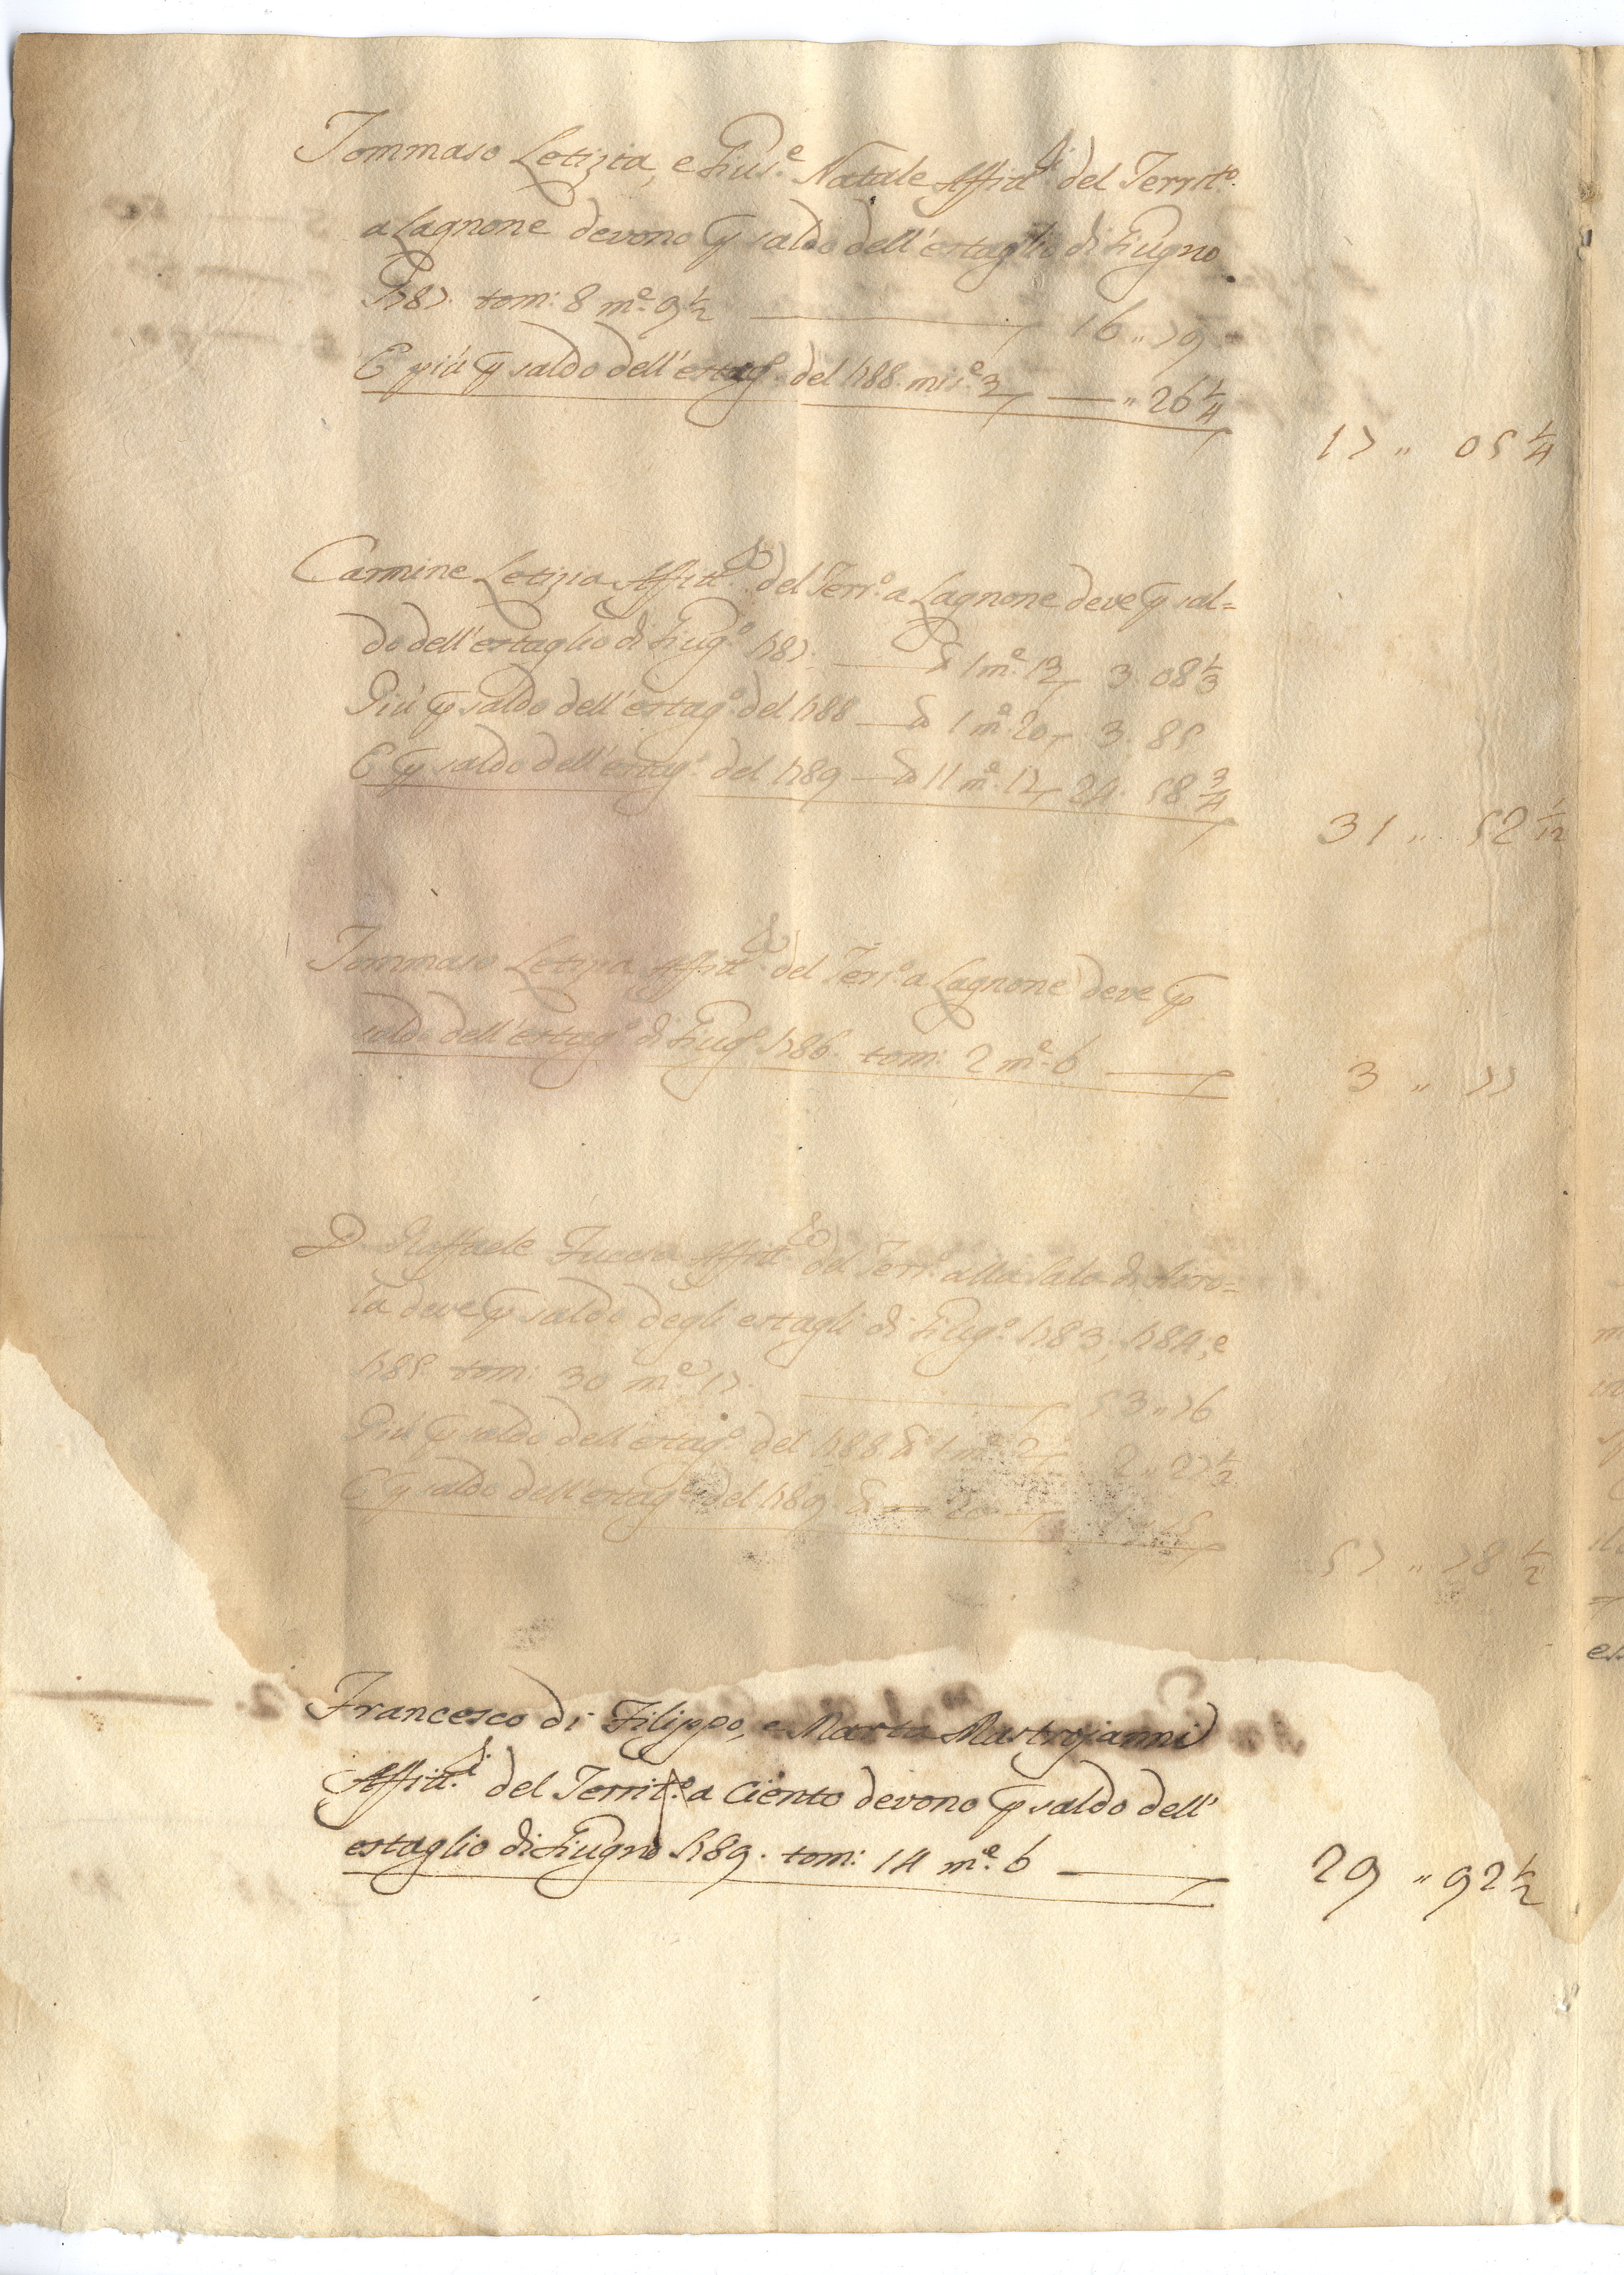 Tommaso Letizia, e Gius.e Natale Affitt.i del Territ.o
a Lagnone devono p saldo dell'estaglio di Giugno
1787. tom: 8 m.e 9 1/2 — 16 „ 79
E più p saldo dell'estag.o del 1788. mis.e 3 — „ 26 1/4
17 „ 05 1/4
Carmine Letizia Affitt.e del Terr.o a Lagnone deve p sal=
do dell'estaglio di Giug.o 1787. — 1 m.e 13 3. 08 1/3
Più p saldo dell'estag.o del 1788 — 1 m.e 20 3. 85
E p saldo dell'estag.o del 1789 — 11 m.e 17 24. 58 3/4
31 „ 52 1/12
Tommaso Letizia Affitt.e del Terr.o a Lagnone deve p
saldo dell'estag.o di Giug.o 1786. tom: 2 m.e 6 — 3 „ 77
D. Raffaele Affitt.e del Terr.o alla Sala di
la deve p saldo degli estagli di Giug.o 1783, 1784, e
1785. tom: 30 m.e 17. — 53 „ 76
Più p saldo dell'estag.o del 1788 1 m.e 2 2 „ 27 1/2
E p saldo dell'estag.o del 1789. — 20 —
57 „ 78 1/2
Francesco di Filippo, e Marta Mastrojanni
Affitt.i del Territ.o a Ciento devono p saldo dell'
estaglio di Giugno 1789. tom: 14 m.e 6 — 29 „ 92 1/2